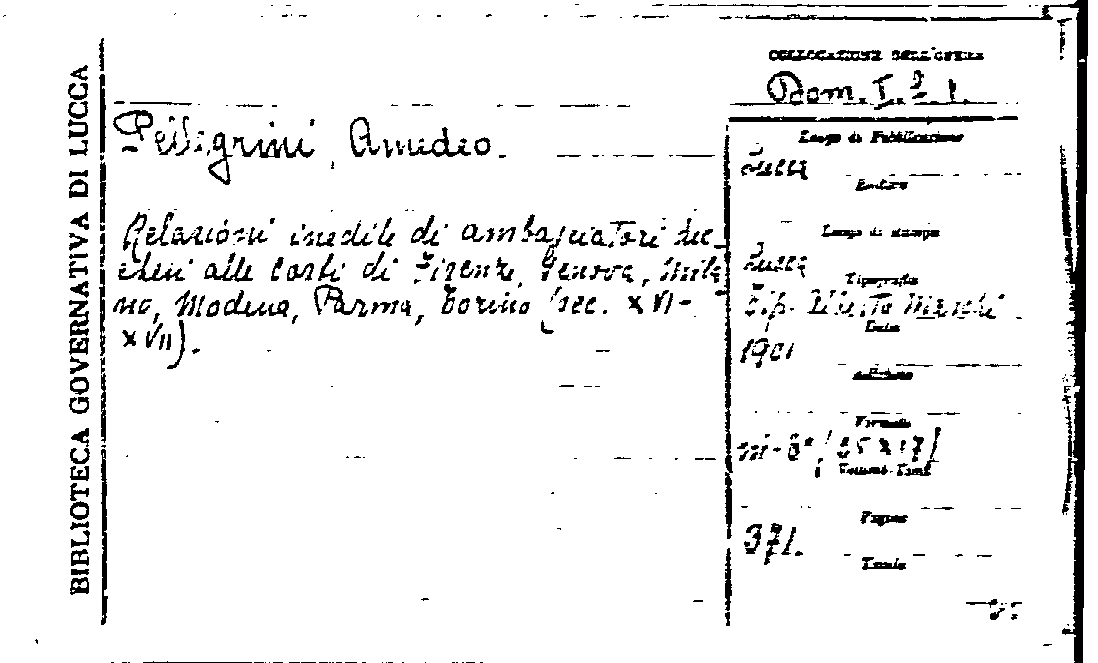 BIBLIOTECA GOVERNATIVA DI LUCCA
Pellegrini, Amedeo.
Relazioni inedite di ambasciatori luc-
chesi alle corti di Firenze, Genova, Mila-
no, Modena, Parma, Torino (sec. XVI-
XVII).
COLLOCAZIONE DELL'OPERA
Dom. I.ª 1.
Luogo di Pubblicazione
Lucca
Editore
Luogo di stampa
Lucca
Tipografia
Tip. Marchi
Data
1901
Edizione
Formato
in-8° (25 x 17)
Volume-Tomi
Pagine
371.
Tavole